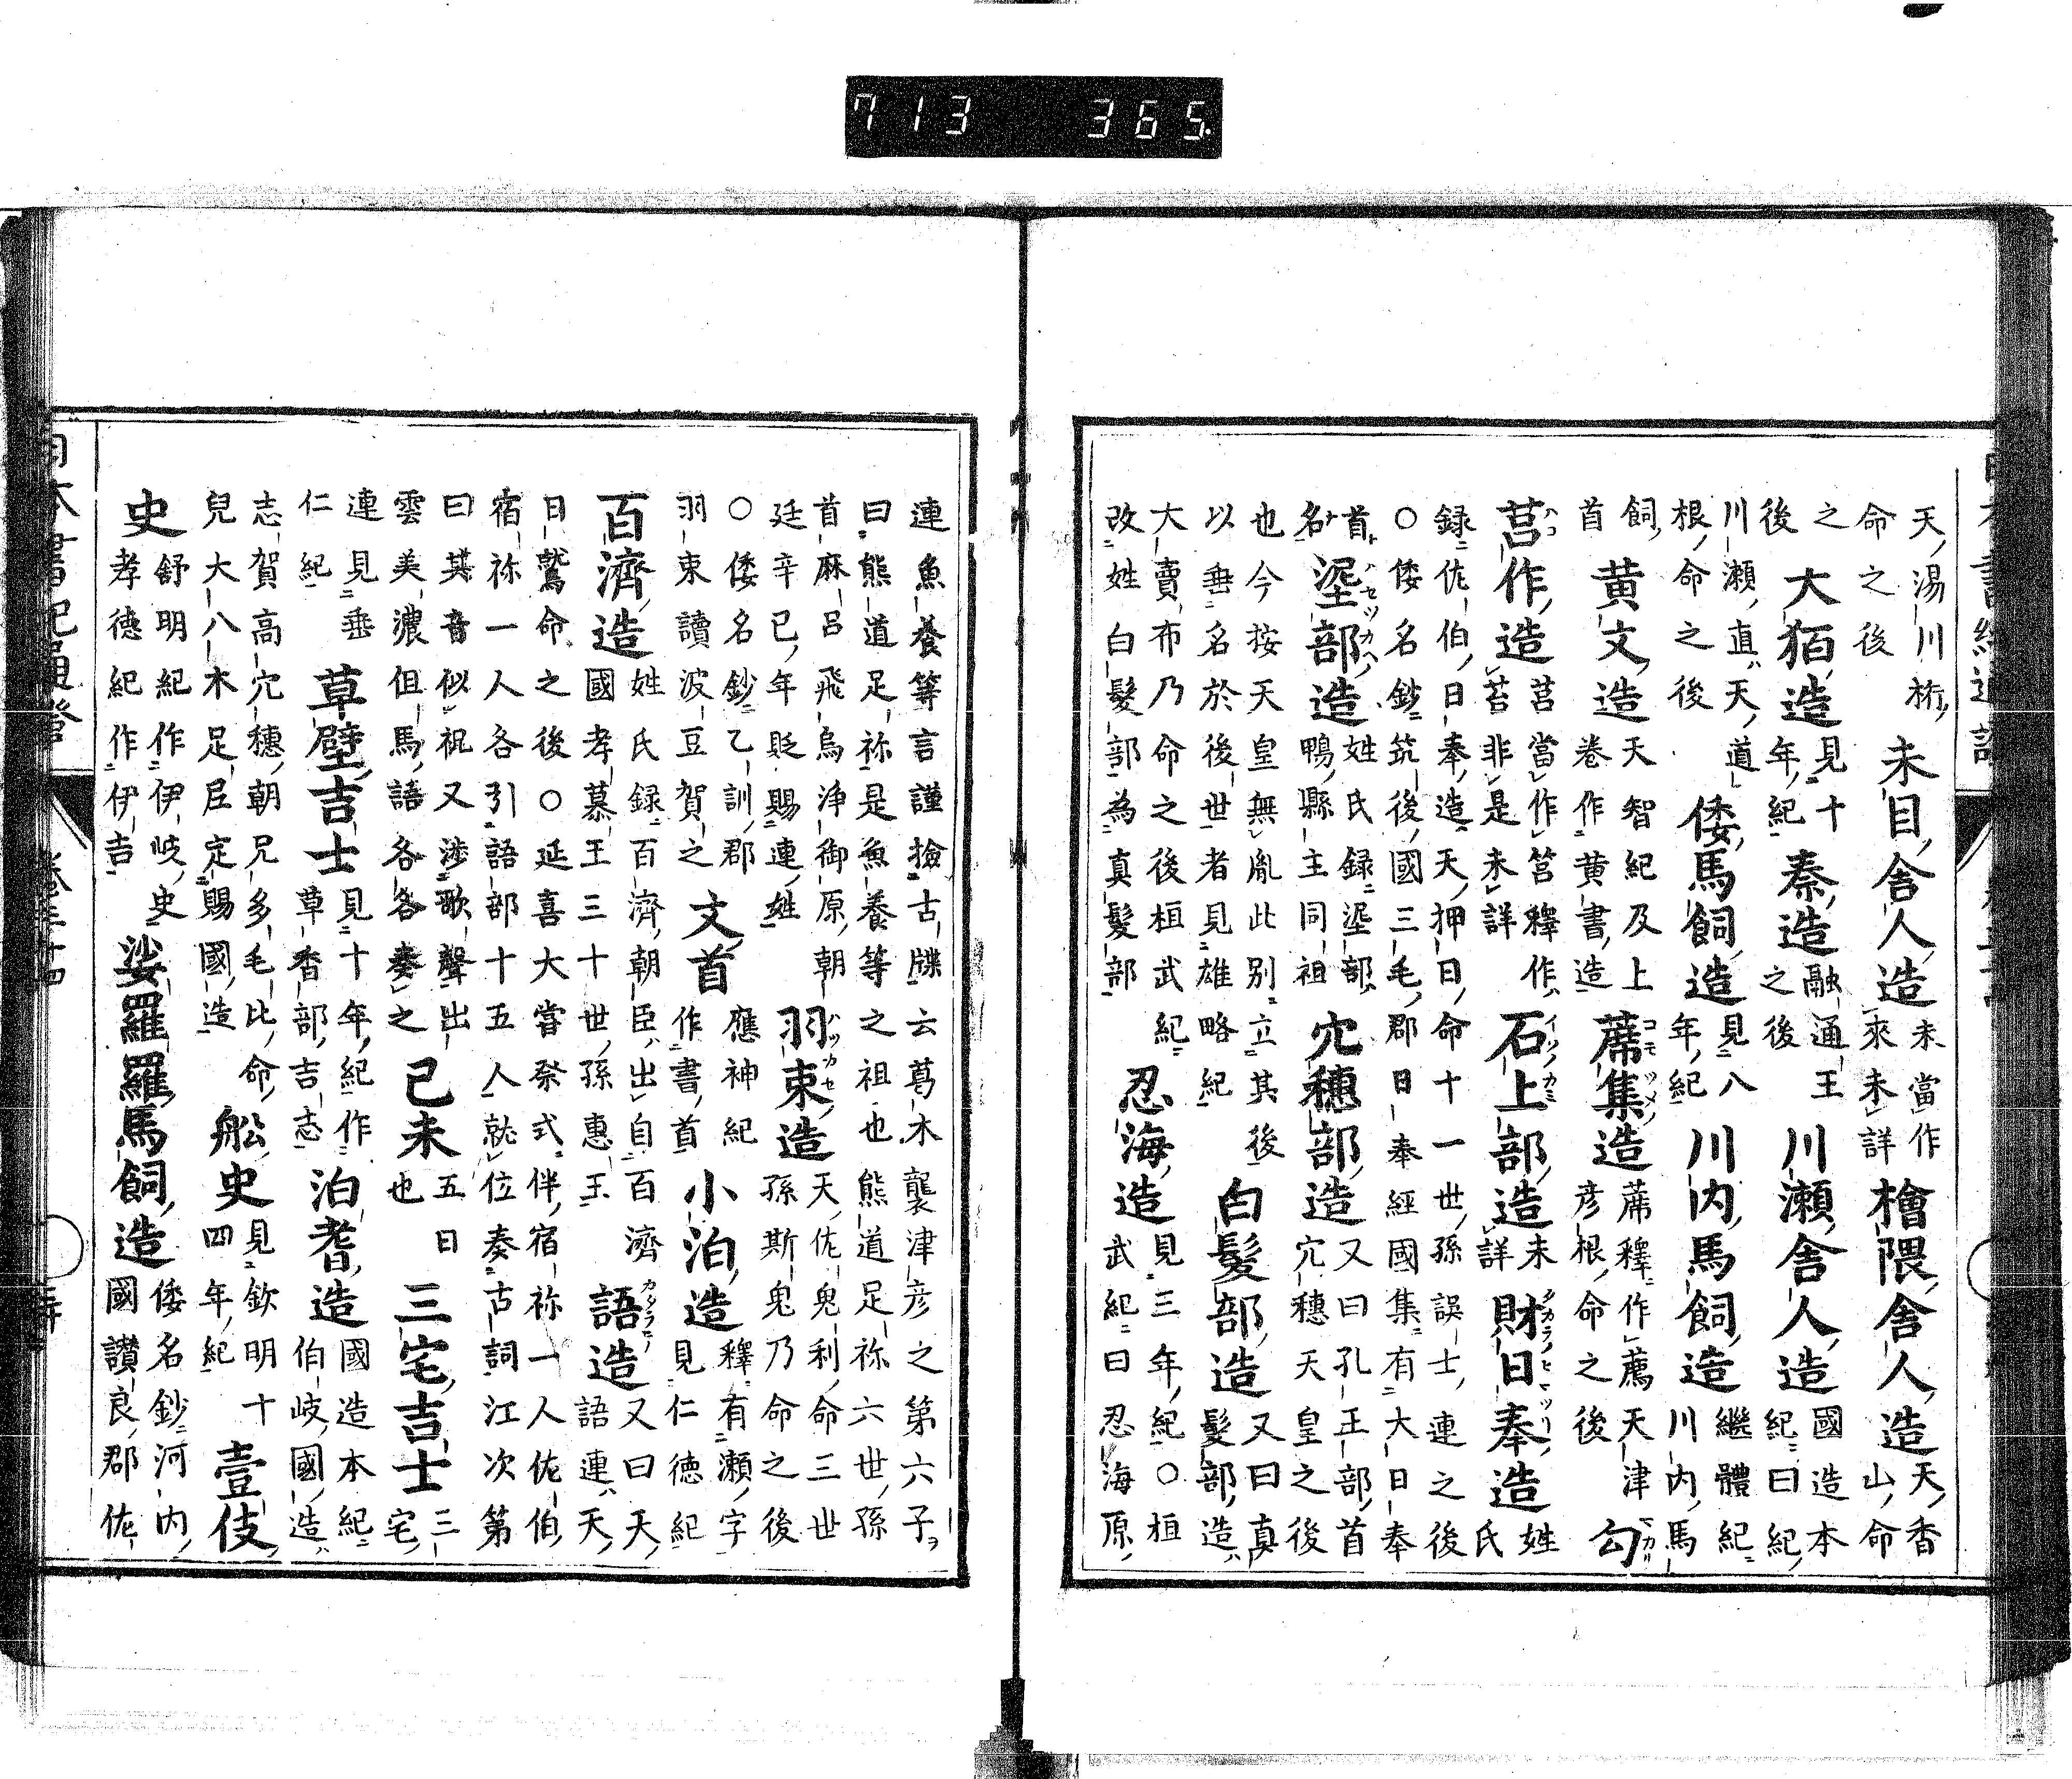 713 365
天湯川桁命之後未目舎人造未當作來未詳檜隈舎人造天香山命
之後大狛造見十年紀秦造融通王之後川瀬舎人造國造本紀曰紀
川瀬直天道根命之後倭馬飼造見八年紀川内馬飼造繼體紀川内馬
飼首黄文造天智紀及上卷作黄書造蓆集造蓆釋作薦天津彦根命之後勾
莒作造莒當作筥釋作苔非是未詳石上部造未詳財日奉造姓氏
録佐伯日奉造天押日命十一世孫誤士連之後○倭名鈔筑後國三毛郡日奉經國集有大日奉
首名埿部造姓氏録埿部鴨縣主同祖穴穗部造又曰孔王部首穴穗天皇之後
也今按天皇無胤此别立其後以垂名於後世者見雄略紀白髪部造又曰真髪部造
大賣布乃命之後桓武紀改姓白髪部為真髪部忍海造見三年紀○桓武紀曰忍海原
連魚養等言謹撿古牒云葛木襲津彦之第六子曰熊道足祢是魚養等之祖也熊道足祢六世孫
首麻呂飛鳥浄御原朝廷辛巳年貶賜連姓羽束造天佐鬼利命三世孫斯鬼乃命之後
○倭名鈔乙訓郡羽束讀波豆賀之文首應神紀作書首小泊造釋有瀬字見仁徳紀
百濟造姓氏録百濟朝臣出自百濟國孝慕王三十世孫惠王語造又曰天語連天
日鷲命之後○延喜大嘗祭式伴宿祢一人佐伯宿祢一人各引語部十五人就位奏古詞江次第
曰其音似祝又渉歌聲出雲美濃但馬語各各奏之己未五日也三宅吉士三宅
連見垂仁紀草壁吉士見十年紀作草香部吉志泊耆造國造本紀伯岐國造
志賀高穴穗朝兄多毛比命兒大八木足尼定賜國造船史見欽明十四年紀壹伎
史舒明紀作伊岐史孝徳紀作伊吉娑羅羅馬飼造倭名鈔河内國讃良郡佐
日本書紀通證
卷三十四